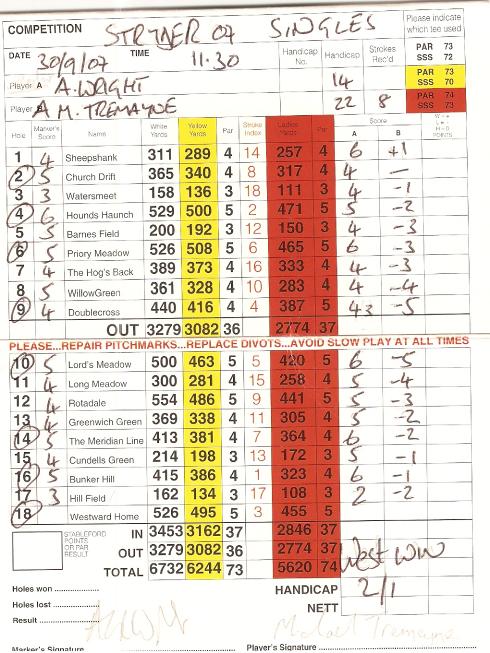 COMPETITION STRYDER 07 SINGLES
Please indicate which tee used
DATE 30/9/07 TIME 11.30 Handicap No. Handicap Strokes Rec'd PAR 73 SSS 72
Player A A.WRIGHT 14 PAR 73 SSS 70
Player B A M. TREMAYNE 22 8 PAR 74 SSS 73
Hole Marker's Score Name White Yards Yellow Yards Par Stroke Index Ladies Yards Par Score A B W = + L = - H = O POINTS
1 4 Sheepshank 311 289 4 14 257 4 6 +1
2 5 Church Drift 365 340 4 8 317 4 4 —
3 3 Watersmeet 158 136 3 18 111 3 4 -1
4 6 Hounds Haunch 529 500 5 2 471 5 5 -2
5 5 Barnes Field 200 192 3 12 150 3 4 -3
6 5 Priory Meadow 526 508 5 6 465 5 6 -3
7 4 The Hog's Back 389 373 4 16 333 4 4 -3
8 5 WillowGreen 361 328 4 10 283 4 4 -4
9 4 Doublecross 440 416 4 4 387 5 43 -5
OUT 3279 3082 36 2774 37
PLEASE...REPAIR PITCHMARKS...REPLACE DIVOTS...AVOID SLOW PLAY AT ALL TIMES
10 5 Lord's Meadow 500 463 5 5 420 5 6 -5
11 4 Long Meadow 300 281 4 15 258 4 5 -4
12 4 Rotadale 554 486 5 9 441 5 5 -3
13 4 Greenwich Green 369 338 4 11 305 4 5 -2
14 5 The Meridian Line 413 381 4 7 364 4 6 -2
15 4 Cundells Green 214 198 3 13 172 3 5 -1
16 5 Bunker Hill 415 386 4 1 323 4 6 -1
17 3 Hill Field 162 134 3 17 108 3 2 -2
18 Westward Home 526 495 5 3 455 5
STABLEFORD POINTS OR PAR RESULT
IN 3453 3162 37 2846 37
OUT 3279 3082 36 2774 37 West WW
TOTAL 6732 6244 73 5620 74
Holes won HANDICAP 2/1
Holes lost NETT
Result
Marker's Signature Player's Signature Michael Tremayne